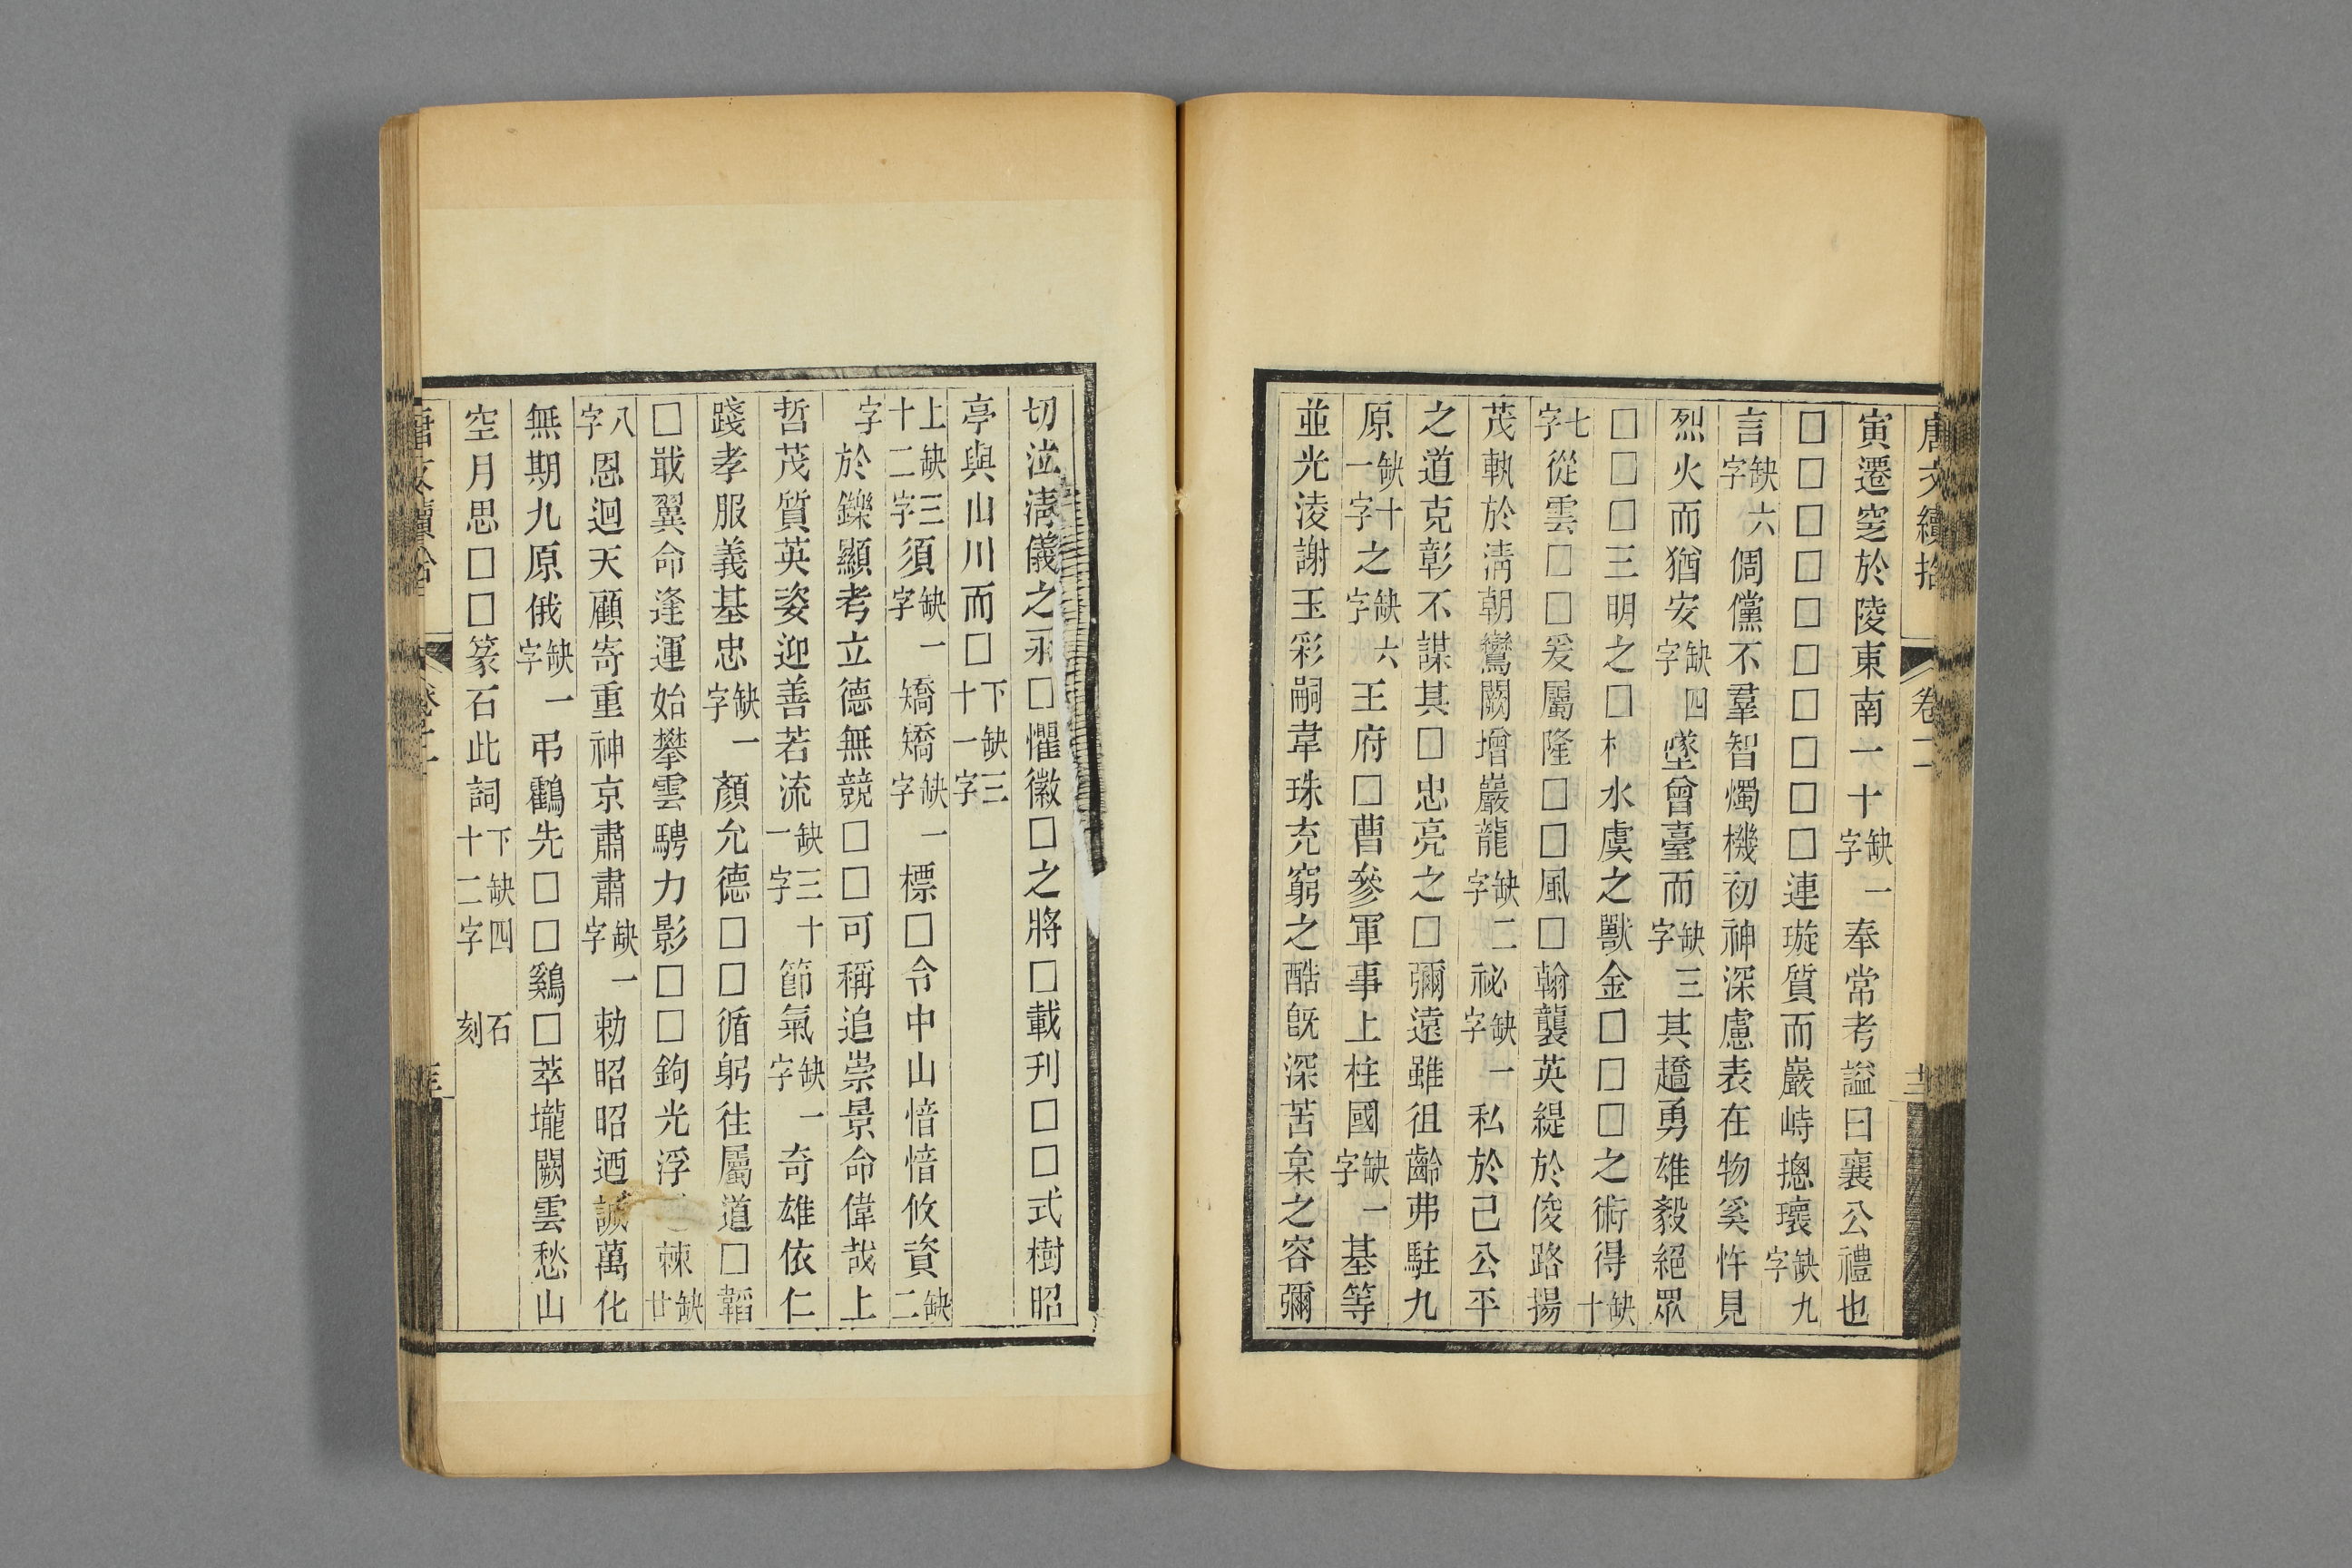 唐文續拾 卷二 十二
寅遷窆於陵東南一十缺一字奉常考謚曰襄公禮也
□□□□□□□□□□連璇質而巖峙摠瓌缺九字
言缺六字倜儻不羣智燭機初神深慮表在物奚忤見
烈火而猶安缺四字墜曾臺而缺三字其趫勇雄毅絕眾
□□□三明之□木水虞之獸金□□□之術得缺十
七字從雲□□爰屬隆□□風□翰襲英緹於俊路揚
茂執於清朝鸞闕增巖龍缺二字祕缺一字私於己公平
之道克彰不謀其□忠亮之□彌遠雖徂齡弗駐九
原缺十一字之缺六字王府□曹參軍事上柱國缺一字基等
並光淩謝玉彩嗣韋珠充窮之酷旣深苦枲之容彌
切泣淸儀之永□懼徽□之將□載刊□□式樹昭
亭與山川而□下缺三十一字
上缺三十二字須缺一字矯矯缺一字標□令中山愔愔攸資缺二
字於鑠顯考立德無競□□可稱追崇景命偉哉上
哲茂質英姿迎善若流缺三十一字節氣缺一字奇雄依仁
踐孝服義基忠缺一字顏允德□□循躬往屬道□韜
□戢翼命逢運始攀雲騁力影□□鉤光浮棘缺廿
八字恩迴天顧寄重神京肅肅缺一字勑昭昭迺誠萬化
無期九原俄缺一字弔鸛先□□鷄□萃壠闕雲愁山
空月思□□篆石此詞下缺四十二字 石刻